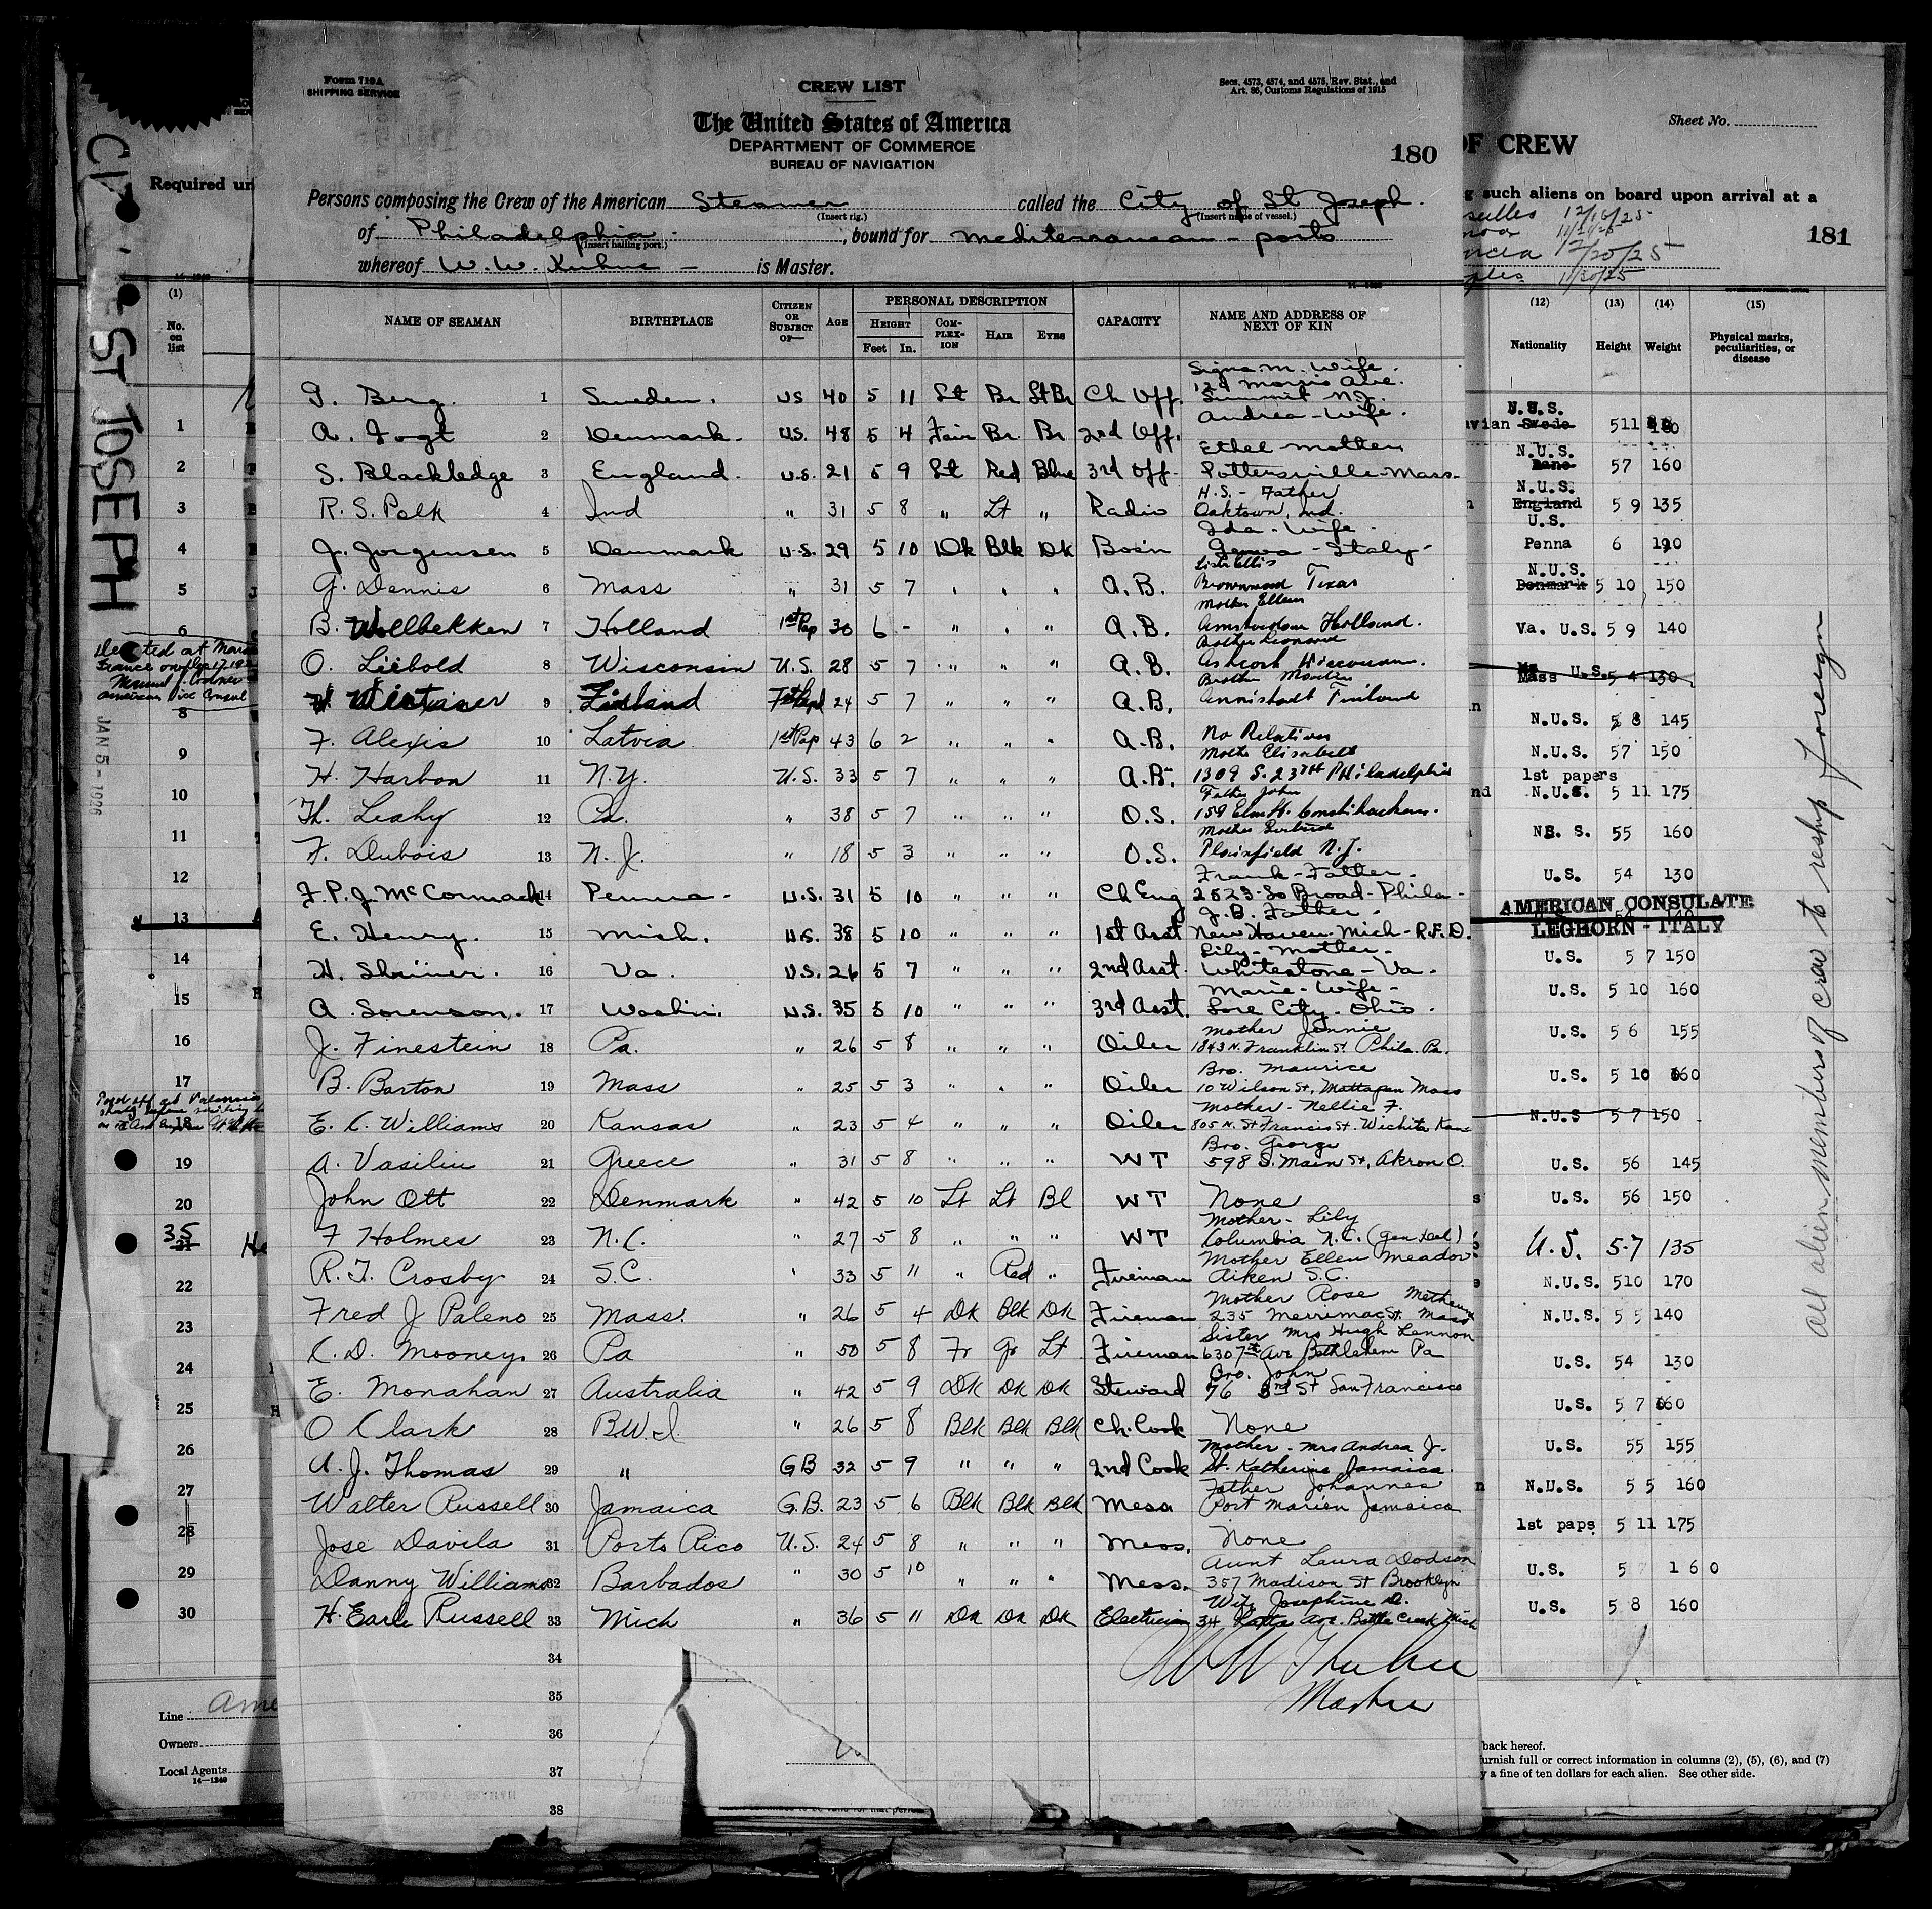 Form 710A
SHIPPING SERVICE
CREW LIST
Secs. 4573, 4574, and 4575, Rev. Stat., and
Art. 86, Customs Regulations of 1915
The United States of America
DEPARTMENT OF COMMERCE
BUREAU OF NAVIGATION
180
Persons composing the Crew of the American Steamer called the City of St Joseph.
(Insert rig.) (Insert name of vessel.)
of Philadelphia, bound for Mediterranean - ports
(Insert hailing port.)
whereof W. W. Kuhne - is Master.
NAME OF SEAMAN BIRTHPLACE CITIZEN OR SUBJECT OF— AGE PERSONAL DESCRIPTION CAPACITY NAME AND ADDRESS OF NEXT OF KIN
HEIGHT COMPLEXION HAIR EYES
Feet In.
Signa M. Wife.
129 Morris Ave.
G. Berg. 1 Sweden. US 40 5 11 Lt Br Lt Br Ch Off. Summit N.J.
Andrea - Wife.
A. Fogt 2 Denmark. U.S. 48 5 4 Fair Br. Br 2nd Off.
Ethel Mother
S. Blackledge 3 England. U.S. 21 5 9 Lt Red Blue 3rd Off. Pottersville Mass-
H.S. - Father
R. S. Polk 4 Ind " 31 5 8 " Lt " Radio Oaktown, Ind.
Ida - Wife.
J. Jorgensen 5 Denmark U.S. 29 5 10 Dk Blk Dk Bos'n Genoa - Italy-
Sister Ellis
G. Dennis 6 Mass " 31 5 7 " " " A.B. Brownwood Texas
Mother Ellen
B. Wollbekken 7 Holland 1st Pap 30 6 - " " " A.B. Amsterdam Holland.
Brother Leonard
O. Liebold 8 Wisconsin U.S. 28 5 7 " " " A.B.
Brother
9 24 5 7 " " " A.B.
F. Alexis 10 Latvia 1st Pap 43 6 2 " " " A.B. No Relatives
Mother Elisabeth
H. Harbon 11 N.Y. U.S. 33 5 7 " " " A.B. 1309 S. 23TH PHiladelphia
Father John
Th. Leahy 12 Pa. " 38 5 7 " " " O.S. 159 Elm St. Conshohocken.
Mother Gertrude
F. Dubois 13 N.J. " 18 5 3 " " " O.S. Plainfield N.J.
Frank - Father -
F.P.J. McCormack 14 Penna - U.S. 31 5 10 " " " Ch Eng 2523 So Broad - Phila -
J.B. Father -
E. Henry. 15 Mich. U.S. 38 5 10 " " " 1st Asst New Haven Mich - R.F.D.
Lily - Mother -
H. Shriner. 16 Va. U.S. 26 5 7 " " " 2nd Asst. Whitestone - Va -
Marie - Wife -
A Sorenson. 17 Washin. U.S. 35 5 10 " " " 3rd Asst. Lore City - Ohio -
Mother Jennie
J. Finestein 18 Pa. " 26 5 8 " " " Oiler 1843 N. Franklin St. Phila. Pa.
Bro. Maurice
B. Barton 19 Mass " 25 5 3 " " " Oiler 10 Wilson St, Mattapan Mass
Mother - Nellie F.
E. C. Williams 20 Kansas " 23 5 4 " " " Oiler 805 N. St Francis St. Wichita Kan-
Bro. George
A. Vasiliu 21 Greece " 31 5 8 " " " WT 598 S. Main St, Akron O.
John Ott 22 Denmark " 42 5 10 Lt Lt Bl WT None
Mother - Lily
F Holmes 23 N.C. " 27 5 8 " " " WT Columbia N.C. (Gen Del)
Mother Ellen Meador
R. T. Crosby 24 S.C. ' 33 5 11 " Red " Fireman Aiken S.C.
Mother Rose Methuen
Fred J Paleno 25 Mass. " 26 5 4 Dk Blk Dk Fireman 235 Merrimac St. Mass
Sister Mrs Hugh Lennon
C. D. Mooney. 26 Pa " 50 5 8 Fr Gr Lt Fireman 630 7th Ave Bethlehem Pa
Bro. John
E. Monahan 27 Australia " 42 5 9 Dk Dk Dk Steward 76 3rd St San Francisco
O Clark 28 B.W.I. " 26 5 8 Blk Blk Blk Ch. Cook None
Mother - Mrs Andrea J.
A. J. Thomas 29 " GB 32 5 9 " " " 2nd Cook St. Katherine Jamaica.
Father Johannes
Walter Russell 30 Jamaica G.B. 23 5 6 Blk Blk Blk Mess Port Marien Jamaica
Jose Davila 31 Porto Rico U.S. 24 5 8 " " " Mess. None
Aunt Laura Dodson
Danny Williams 32 Barbados " 30 5 10 " " " Mess. 357 Madison St Brooklyn
Wife Josephine D.
H. Earle Russell 33 Mich " 36 5 11 Dk Dk Dk Electrician 34 Ave. Battle Creek Mich
34
35
36
37
38
Master
CITY OF ST JOSEPH
JAN 5 - 1926
Required un
(1)
No. on list
1
2
3
4
5
6
8
9
10
11
12
13
14
15
16
17
18
19
20
35
21
22
23
24
25
26
27
28
29
30
Line Ame
Owners
Local Agents
14—1240
Sheet No.
OF CREW
g such aliens on board upon arrival at a
seilles 12/16/25
noa
ncia 12/20/25
ples 11/30/25
181
(12) (13) (14) (15)
Nationality Height Weight Physical marks, peculiarities, or disease
N.U.S.
vian Swede 511
N.U.S.
Dane 57 160
N.U.S.
England 5 9 135
U.S.
Penna 6 190
N.U.S.
Denmark 5 10 150
Va. U.S. 5 9 140
Mass U.S. 5 4 130
N.U.S. 5 8 145
N.U.S. 57 150
1st papers
N.U.S. 5 11 175
55 160
U.S. 54 130
AMERICAN CONSULATE
LEGHORN - ITALY
U.S. 5 7 150
U.S. 5 10 160
U.S. 5 6 155
U.S. 5 10 160
N.U.S 5 7 150
U.S. 56 145
U.S. 56 150
U.S. 5-7 135
N.U.S. 510 170
N.U.S. 5 5 140
U.S. 54 130
U.S. 5 7 160
U.S. 55 155
N.U.S. 5 5 160
1st paps 5 11 175
U.S. 5 7 160
U.S. 5 8 160
All alien members of crew to reship foreign
back hereof.
urnish full or correct information in columns (2), (5), (6), and (7)
y a fine of ten dollars for each alien. See other side.